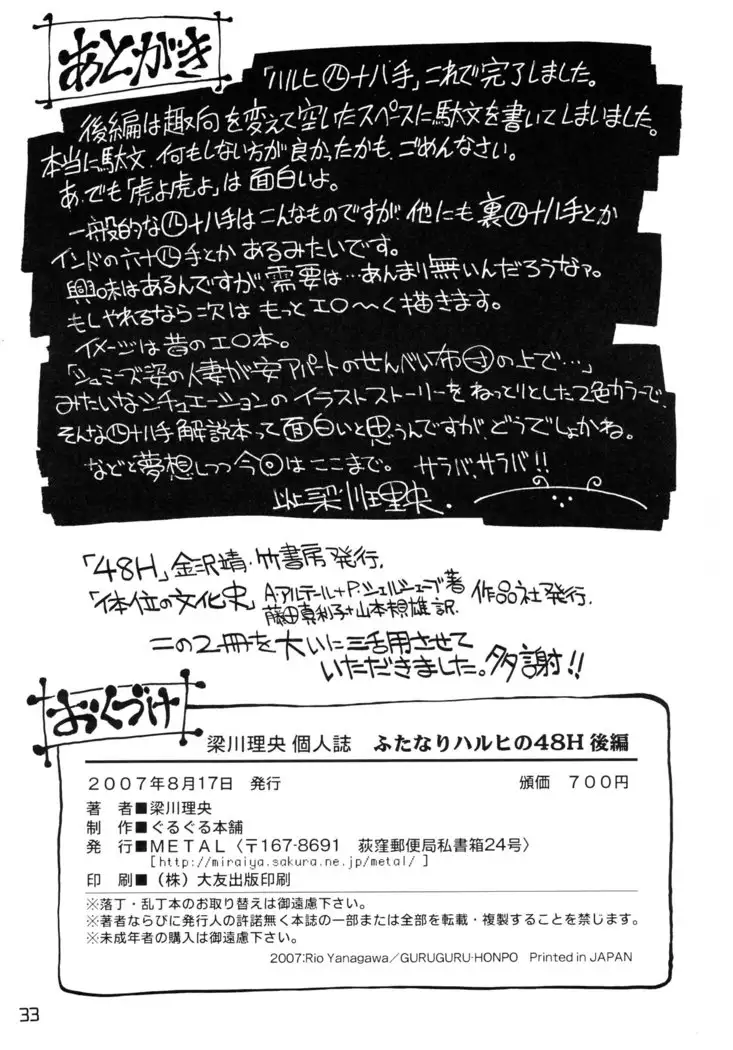 あとがき
「ハルヒ四十八手」、これで完了しました。
後編は趣向を変えて空いたスペースに駄文を書いてしまいました。
本当に駄文、何もしない方が良かったかも、ごめんなさい。
あ、でも「虎よ虎よ」は面白いよ。
一般的な四十八手はこんなものですが、他にも裏四十八手とか
インドの六十四手とかあるみたいです。
興味はあるんですが、需要は…あんまり無いんだろうなァ。
もしやれるなら次はもっとエ〇〜く描きます。
イメージは昔のエ〇本。
「シュミーズ姿の人妻が安アパートのせんべい布団の上で…」
みたいなシチュエーションのイラストストーリーをねっとりとした2色カラーで、
そんな四十八手解説本って面白いと思うんですが、どうでしょかね。
などと夢想しつつ今回はここまで。サラバ、サラバ!!
以上 梁川理央.
「48H」金沢靖・竹書房発行.
「体位の文化史」A・アルテール+P・シェルシェーブ著
藤田真利子+山本規雄訳 作品社発行.
この2冊を大いに活用させて
いただきました。多謝!!
おくづけ
梁川理央 個人誌 ふたなりハルヒの48H 後編
2007年8月17日 発行 頒価 700円
著 者■梁川理央
制 作■ぐるぐる本舗
発 行■METAL〈〒167-8691 荻窪郵便局私書箱24号〉
[http://miraiya.sakura.ne.jp/metal/ ]
印 刷■(株)大友出版印刷
※落丁・乱丁本のお取り替えは御遠慮下さい。
※著者ならびに発行人の許諾無く本誌の一部または全部を転載・複製することを禁じます。
※未成年者の購入は御遠慮下さい。
2007:Rio Yanagawa/GURUGURU-HONPO Printed in JAPAN
33